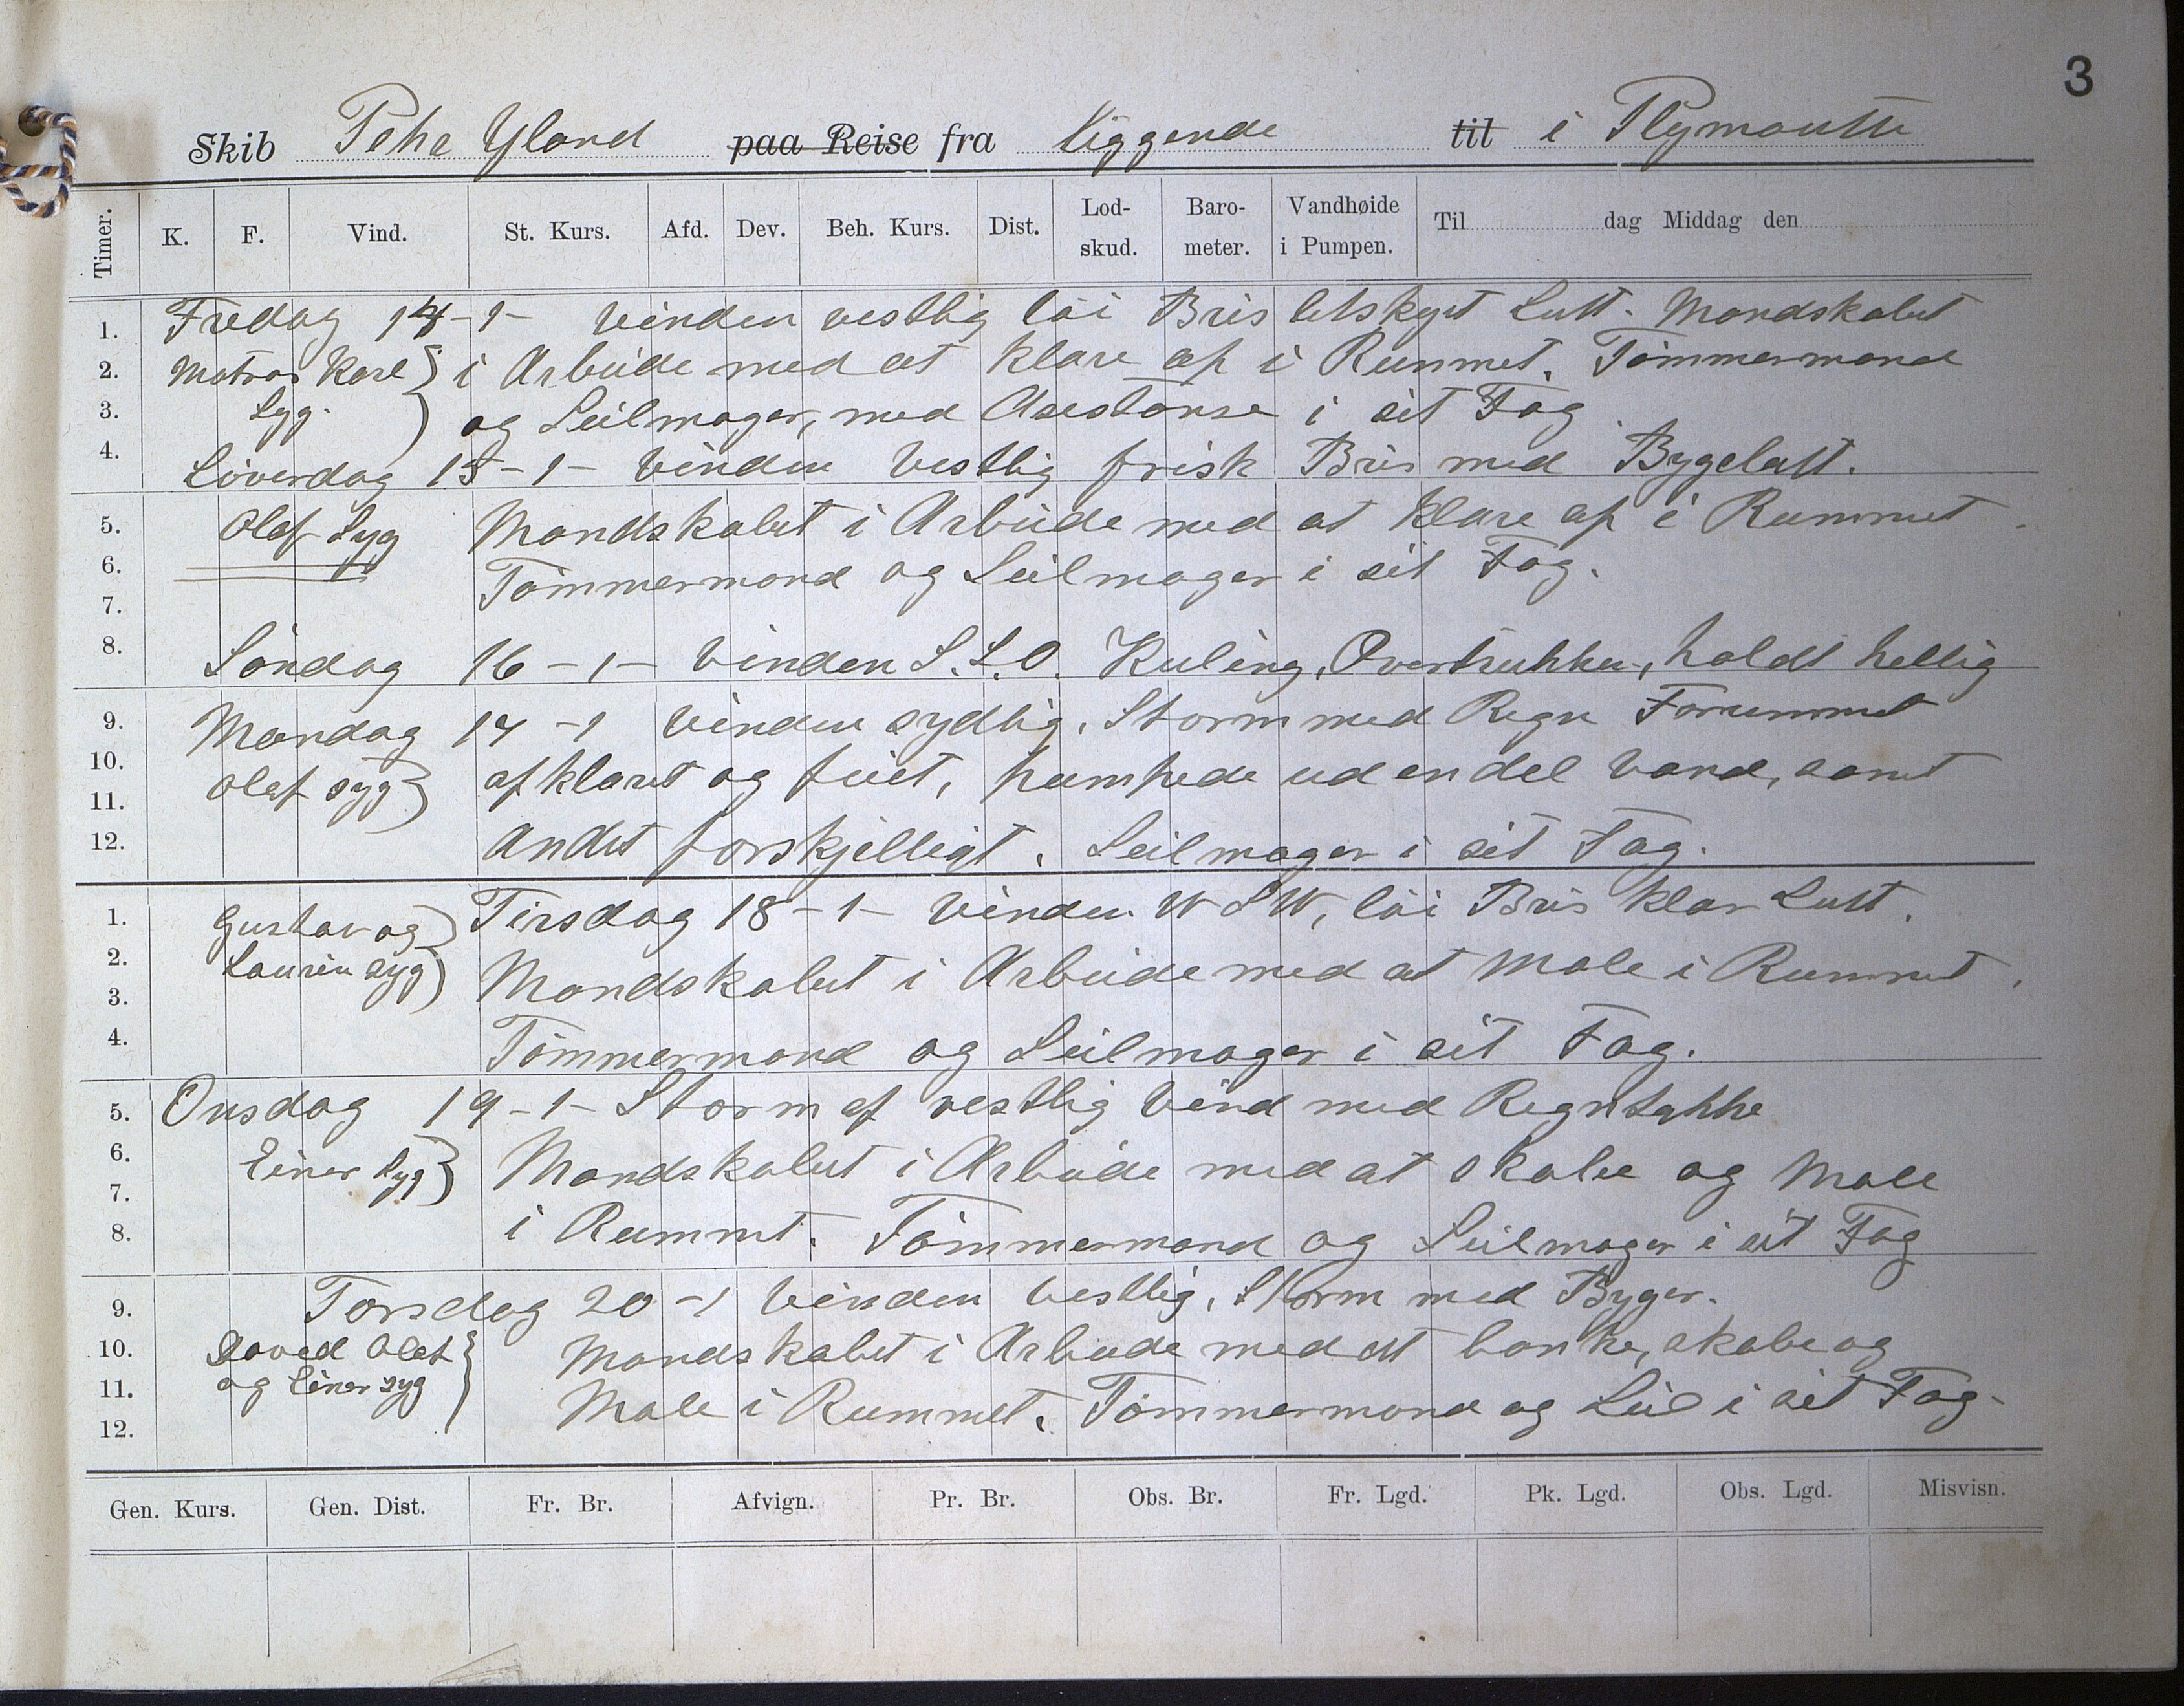 3
Skib Pehr Ugland paa Reise fra Liggende til i Plymouth
Timer. K. F. Vind. St. Kurs. Afd. Dev. Beh. Kurs. Dist. Lod-skud. Baro-meter. Vandhøide i Pumpen. Til dag Middag den
1. Fredag 14-1- Vinden vestlig löi Bris letskyet Luft. Mandskabet
2. Matros Karl i Arbeide med at klare op i Rummet. Tömmermand
3. Syg. og Seilmager, med Assistanse i sit Fag
4. Löverdag 15-1- Vinden Vestlig frisk Bris med Bygeluft.
5. Olaf Syg Mandskabet i Arbeide med at klare op i Rummet.
6. Tömmermand og Seilmager i sit Fag.
7.
8. Söndag 16-1- Vinden S.S.O. Kuling, Overtrukken, holdt hellig
9. Mandag 17-1 Vinden sydlig. Storm med Regn Forrummet
10. Olaf syg afklaret og feiet, pumpede ud en del Vand, samt
11.
12. Andet forskjelligt. Seilmager i sit Fag.
1. Gustav og Tirsdag 18-1- Vinden WSW, löi Bris klar Luft.
2. Laurin syg Mandskabet i Arbeide med at Male i Rummet.
3.
4. Tömmermand og Seilmager i sit Fag.
5. Onsdag 19-1- Storm af vestlig Vind med Regntykke
6. Einar Syg Mandskabet i Arbeide med at skabe og Male
7.
8. i Rummet. Tömmermand og Seilmager i sit Fag
9. Torsdag 20-1 Vinden Vestlig, Storm med Byger.
10. David Olaf Mandskabet i Arbeide med at banke, skabe og
11. og Einar syg Male i Rummet. Tömmermand og Seil i sit Fag-
12.
Gen. Kurs. Gen. Dist. Fr. Br. Afvign. Pr. Br. Obs. Br. Fr. Lgd. Pk. Lgd. Obs. Lgd. Misvisn.